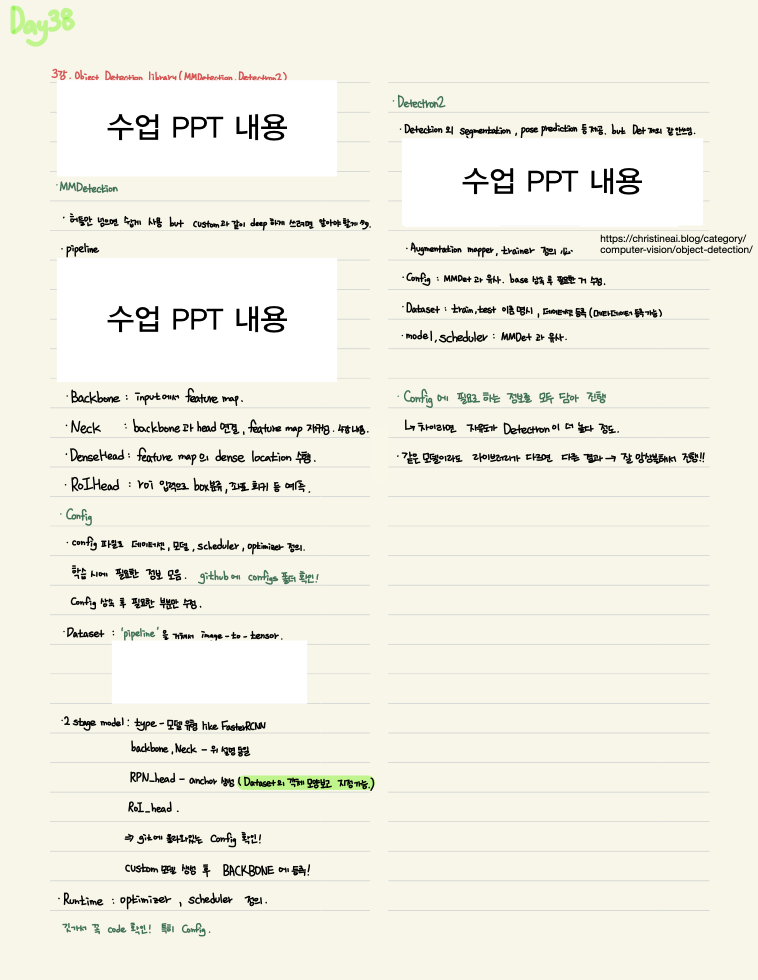 Day38
3강. Object Detection library (MMDetection, Detectron2)
수업 PPT 내용
· MMDetection
· 허들만 넘으면 쉽게 사용 but custom과 같이 deep하게 쓰려면 알아야할게 多.
· pipeline
수업 PPT 내용
· Backbone : input에서 feature map.
· Neck : backbone과 head 연결, feature map 재구성.
· DenseHead : feature map의 dense location 수행.
· RoIHead : roi 입력으로 box분류, 좌표 회귀 등 예측.
· Config
· config 파일로 데이터셋, 모델, scheduler, optimizer 정의.
학습 시에 필요한 정보 모음. github에 configs 폴더 확인!
Config 상속 후 필요한 부분만 수정.
· Dataset : 'pipeline'을 거쳐서 image-to-tensor.
· 2 stage model : type - 모델 유형 like FasterRCNN
backbone, Neck - 위 설명 동일
RPN_head - anchor 생성 (Dataset의 객체 모양보고 지정가능.)
RoI_head.
⇒ git에 올라와있는 Config 확인!
custom 모델 생성 후 BACKBONE에 등록!
· Runtime : optimizer, scheduler 정의.
깃가서 꼭 code 확인! 특히 Config.
· Detectron2
· Detection 외 segmentation, pose prediction 등 제공. but Det 제외 잘 안쓰임.
수업 PPT 내용
https://christineai.blog/category/
computer-vision/object-detection/
· Augmentation mapper, trainer 정의 必.
· Config : MMDet과 유사. base 상속 후 필요한 거 수정.
· Dataset : train, test 이름 명시, 데이터셋 등록 (메타데이터 등록가능)
· model, scheduler : MMDet과 유사.
· Config에 필요로 하는 정보를 모두 담아 진행
↳ 차이라면 자유도가 Detectron이 더 높다 정도.
· 같은 모델이라도 라이브러리가 다르면 다른 결과 → 잘 앙상블해서 진행!!